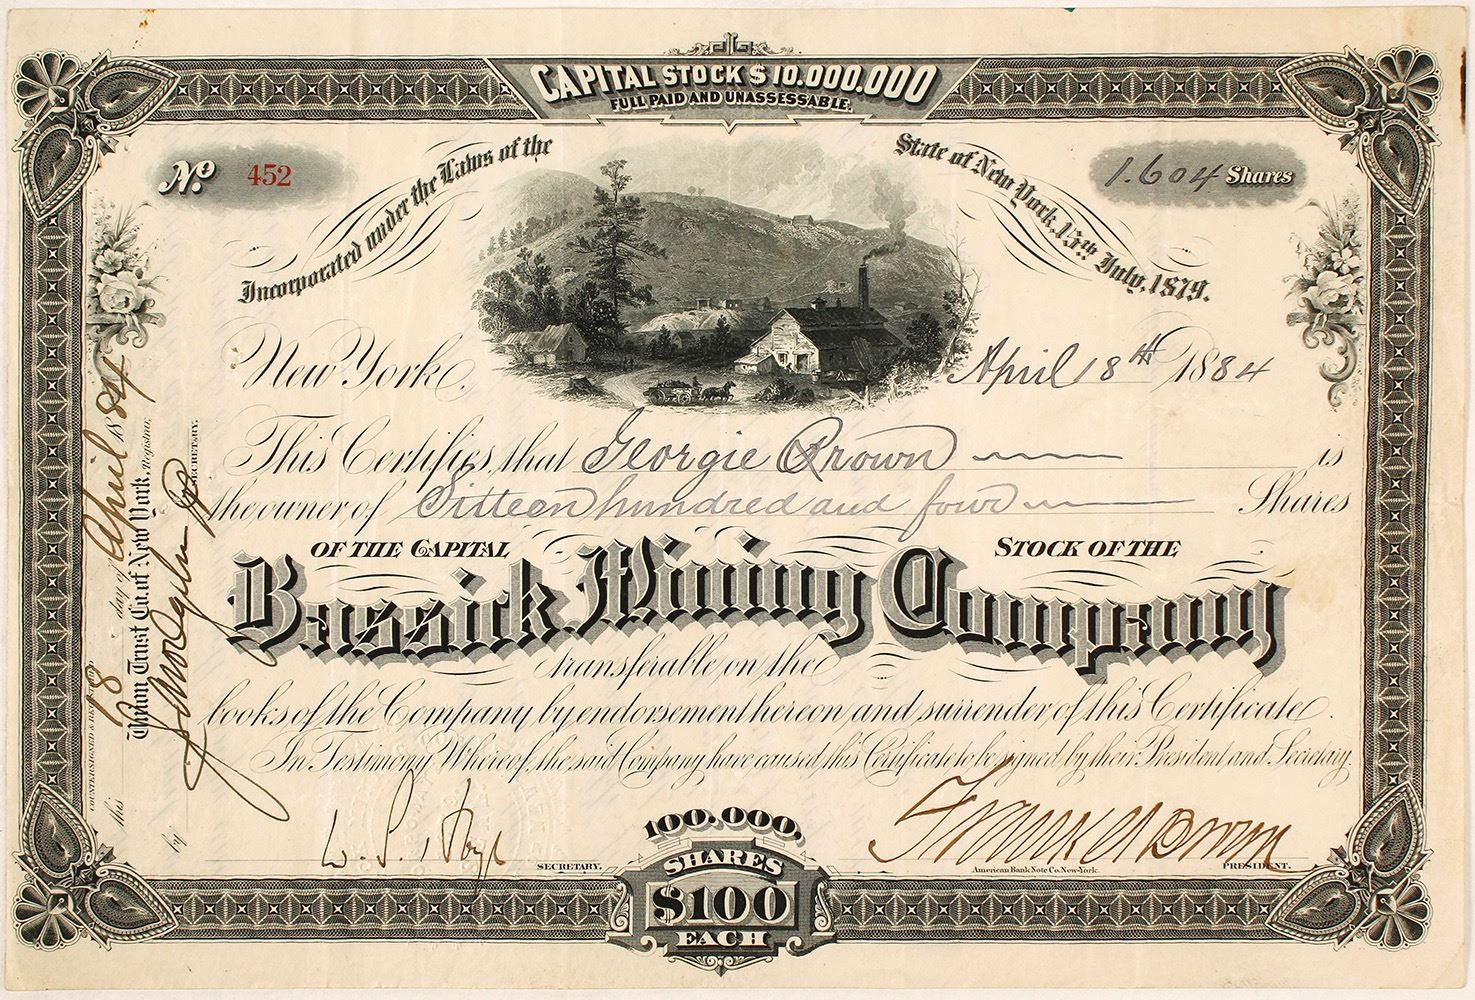 CAPITAL STOCK $10.000.000
FULL PAID AND UNASSESSABLE.
No. 452
Incorporated under the Laws of the State of New York, 15th July, 1879.
1.604 Shares
New York, April 18th 1884
This Certifies that Georgie Brown is
the owner of Sixteen hundred and four Shares
OF THE CAPITAL STOCK OF THE
Bassick Mining Company
transferable on the
books of the Company by endorsement hereon and surrender of this Certificate.
In Testimony Whereof, the said Company have caused this Certificate to be signed by their President and Secretary.
SECRETARY.
PRESIDENT.
Frank A Brown
American Bank Note Co. New-York.
100.000.
SHARES
$100
EACH
COUNTERSIGNED & REGISTERED
this 18 day of April 1884
Union Trust Co. of New York, Registrar,
by
SECRETARY.